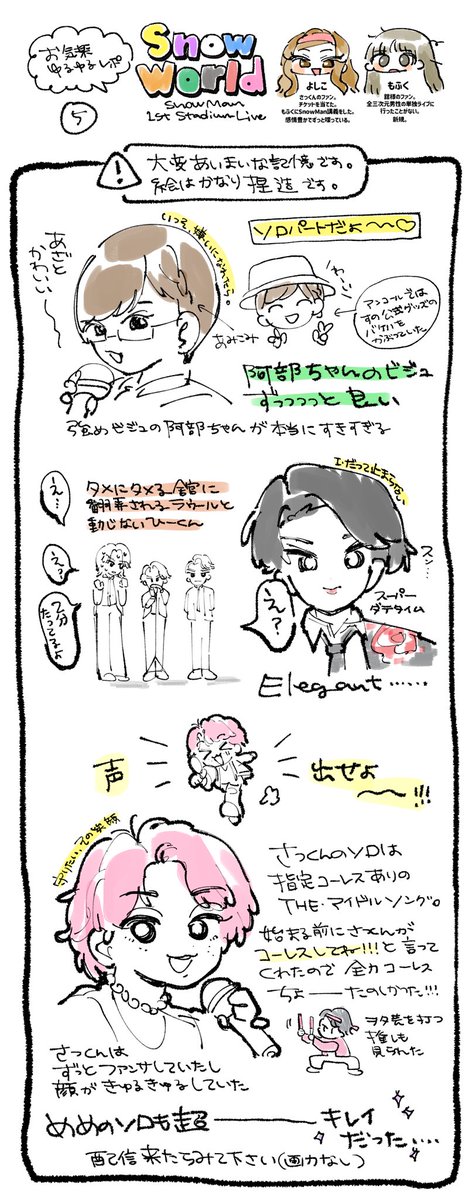 お気楽
ゆるゆるレポ
5
Snow
World
SnowMan
1st Stadium Live
よしこ
さっくんのファン。
チケットを当てた。
もふくにSnowMan講義をした。
感情豊かでずっと喋っている。
もふく
舘様のファン。
全三次元男性の単独ライブに
行ったことがない。
新規。
大変あいまいな記憶です。
絵はかなり捏造です。
ソロパートだよ〜〜♡
いっそ、嫌いになれたら。
あざと
かわいい
あみこみ
わーい
アンコールでは
すの公式グッズの
バケハを
かぶっていた
阿部ちゃんのビジュ
ずっっっっと良い
強めビジュの阿部ちゃんが本当にすきすぎる
タメにタメる舘に
翻弄されるラウールと
動じないひーくん
え…
え?
2分
たってるよ
I・だって止まらない
スン…
え?
スーパー
ダテタイム
Elegant……
声
出せよ
〜!!!
守りたい、この笑顔
さっくんのソロは
指定コーレスありの
THE・アイドルソング。
始まる前にさっくんが
コーレスしてね!!!と言って
くれたので全力コーレス
ちょーーたのしかった!!!
ヲタ芸を打つ
推しも
見られた
さっくんは
ずっとファンサしていたし
顔がきゅるきゅるしていた
めめのソロも超――キレイ
だった…
配信来たらみて下さい(画力なし)